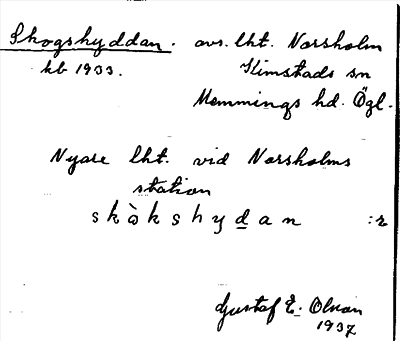 Skogshyddan. avs. lht. Norsholm
kb 1933. Kimstads sn
Memmings hd. Ögl.
Nyare lht. vid Norsholms
station
skòkshydan :r
Gustaf E. Olson
1937